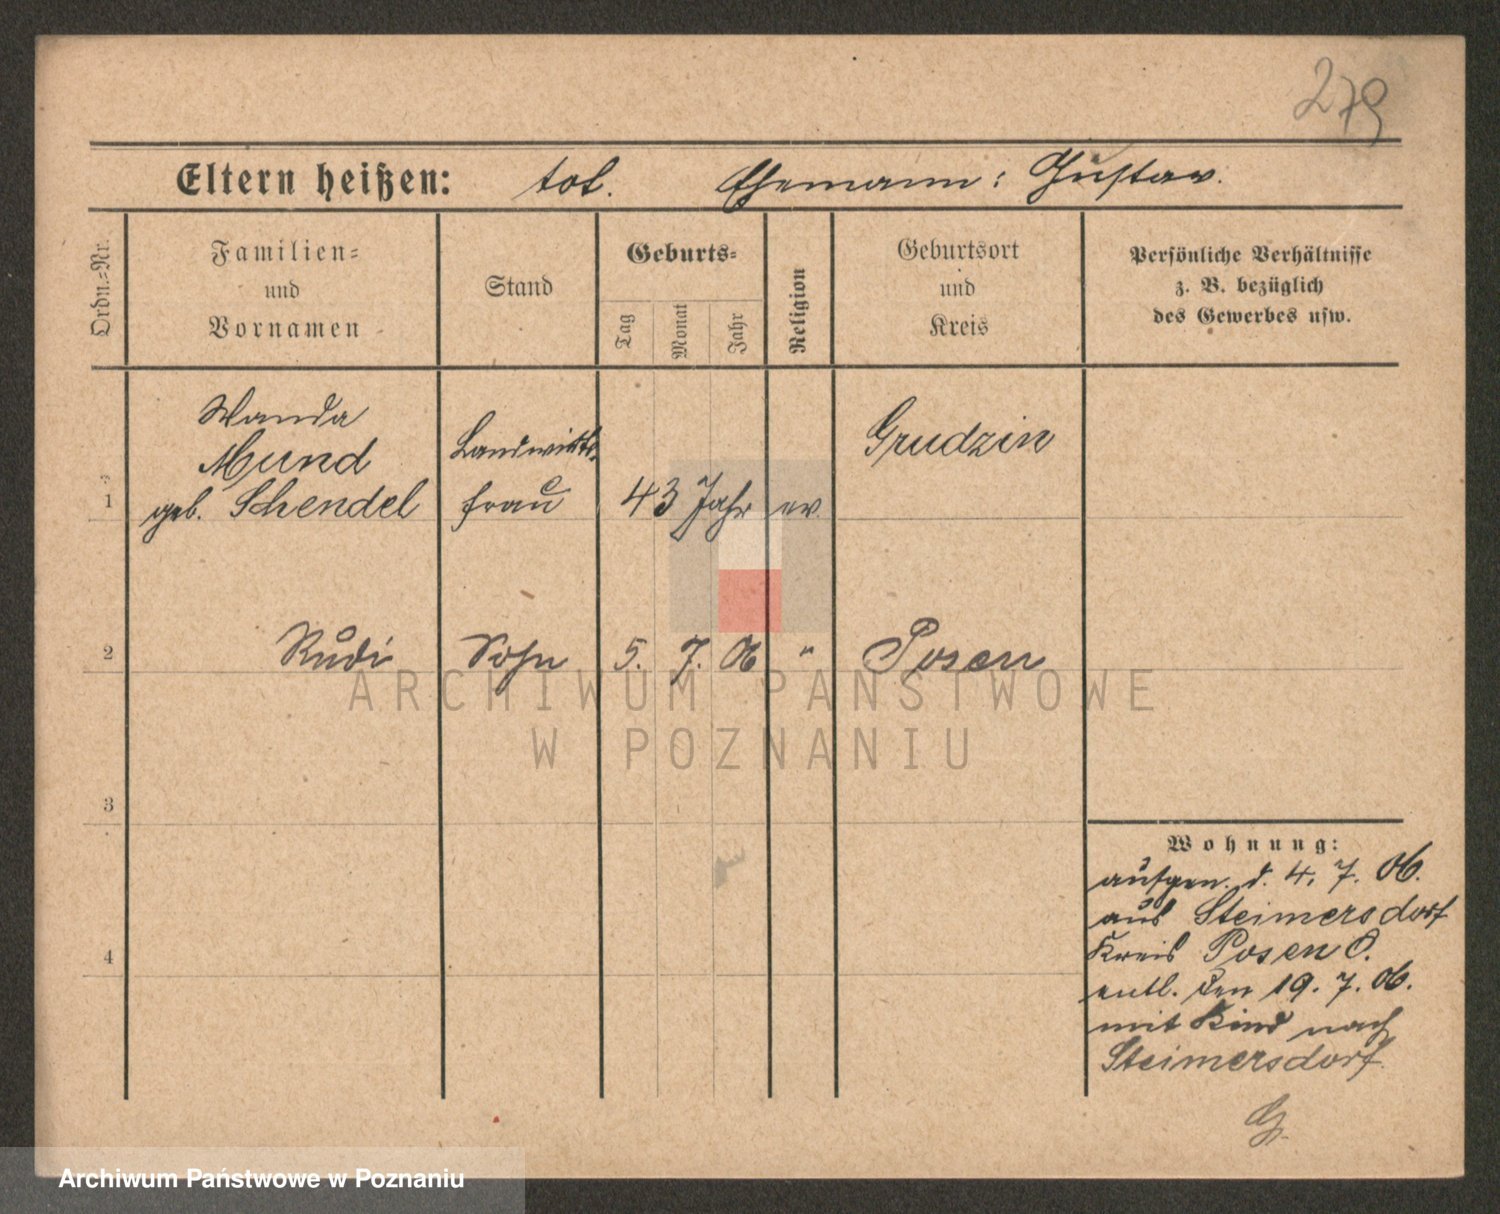 279
Eltern heißen: tot. Ehemann: Gustav.
Ordn.-Nr.
Familien-
und
Vornamen
Stand
Geburts-
Tag
Monat
Jahr
Religion
Geburtsort
und
Kreis
Persönliche Verhältnisse
z. B. bezüglich
des Gewerbes usw.
Wanda
Mund
1 geb. Schendel
Landwirts-
frau
43 Jahr
ev.
Grudzin
2 Rudi Sohn 5. 7. 06 " Posen
3
4
Wohnung:
aufgen. d. 4. 7. 06.
aus Steimersdorf
Kreis Posen O.
entl. den 19. 7. 06.
mit Kind nach
Steimersdorf.
ARCHIWUM PAŃSTWOWE
W POZNANIU
Archiwum Państwowe w Poznaniu